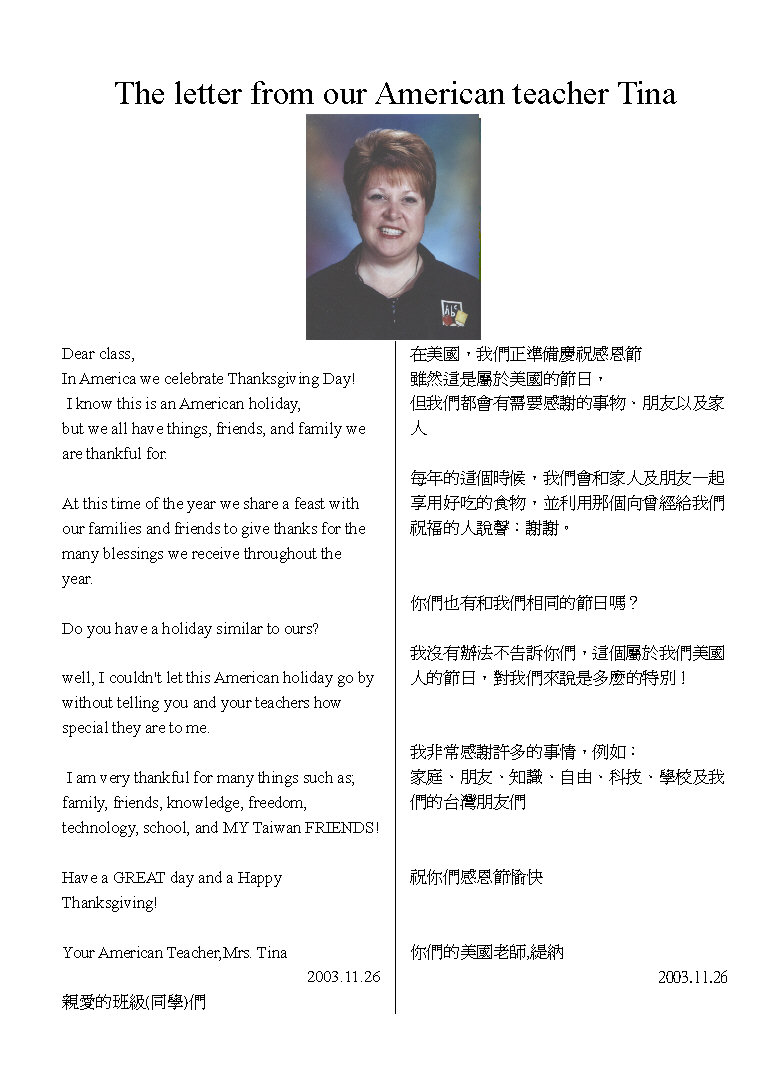 The letter from our American teacher Tina
Dear class,
In America we celebrate Thanksgiving Day!
I know this is an American holiday,
but we all have things, friends, and family we
are thankful for.
At this time of the year we share a feast with
our families and friends to give thanks for the
many blessings we receive throughout the
year.
Do you have a holiday similar to ours?
well, I couldn't let this American holiday go by
without telling you and your teachers how
special they are to me.
I am very thankful for many things such as;
family, friends, knowledge, freedom,
technology, school, and MY Taiwan FRIENDS!
Have a GREAT day and a Happy
Thanksgiving!
Your American Teacher,Mrs. Tina
2003.11.26
親愛的班級(同學)們
在美國，我們正準備慶祝感恩節
雖然這是屬於美國的節日，
但我們都會有需要感謝的事物、朋友以及家
人
每年的這個時候，我們會和家人及朋友一起
享用好吃的食物，並利用那個向曾經給我們
祝福的人說聲：謝謝。
你們也有和我們相同的節日嗎？
我沒有辦法不告訴你們，這個屬於我們美國
人的節日，對我們來說是多麼的特別！
我非常感謝許多的事情，例如：
家庭、朋友、知識、自由、科技、學校及我
們的台灣朋友們
祝你們感恩節愉快
你們的美國老師,緹納
2003.11.26